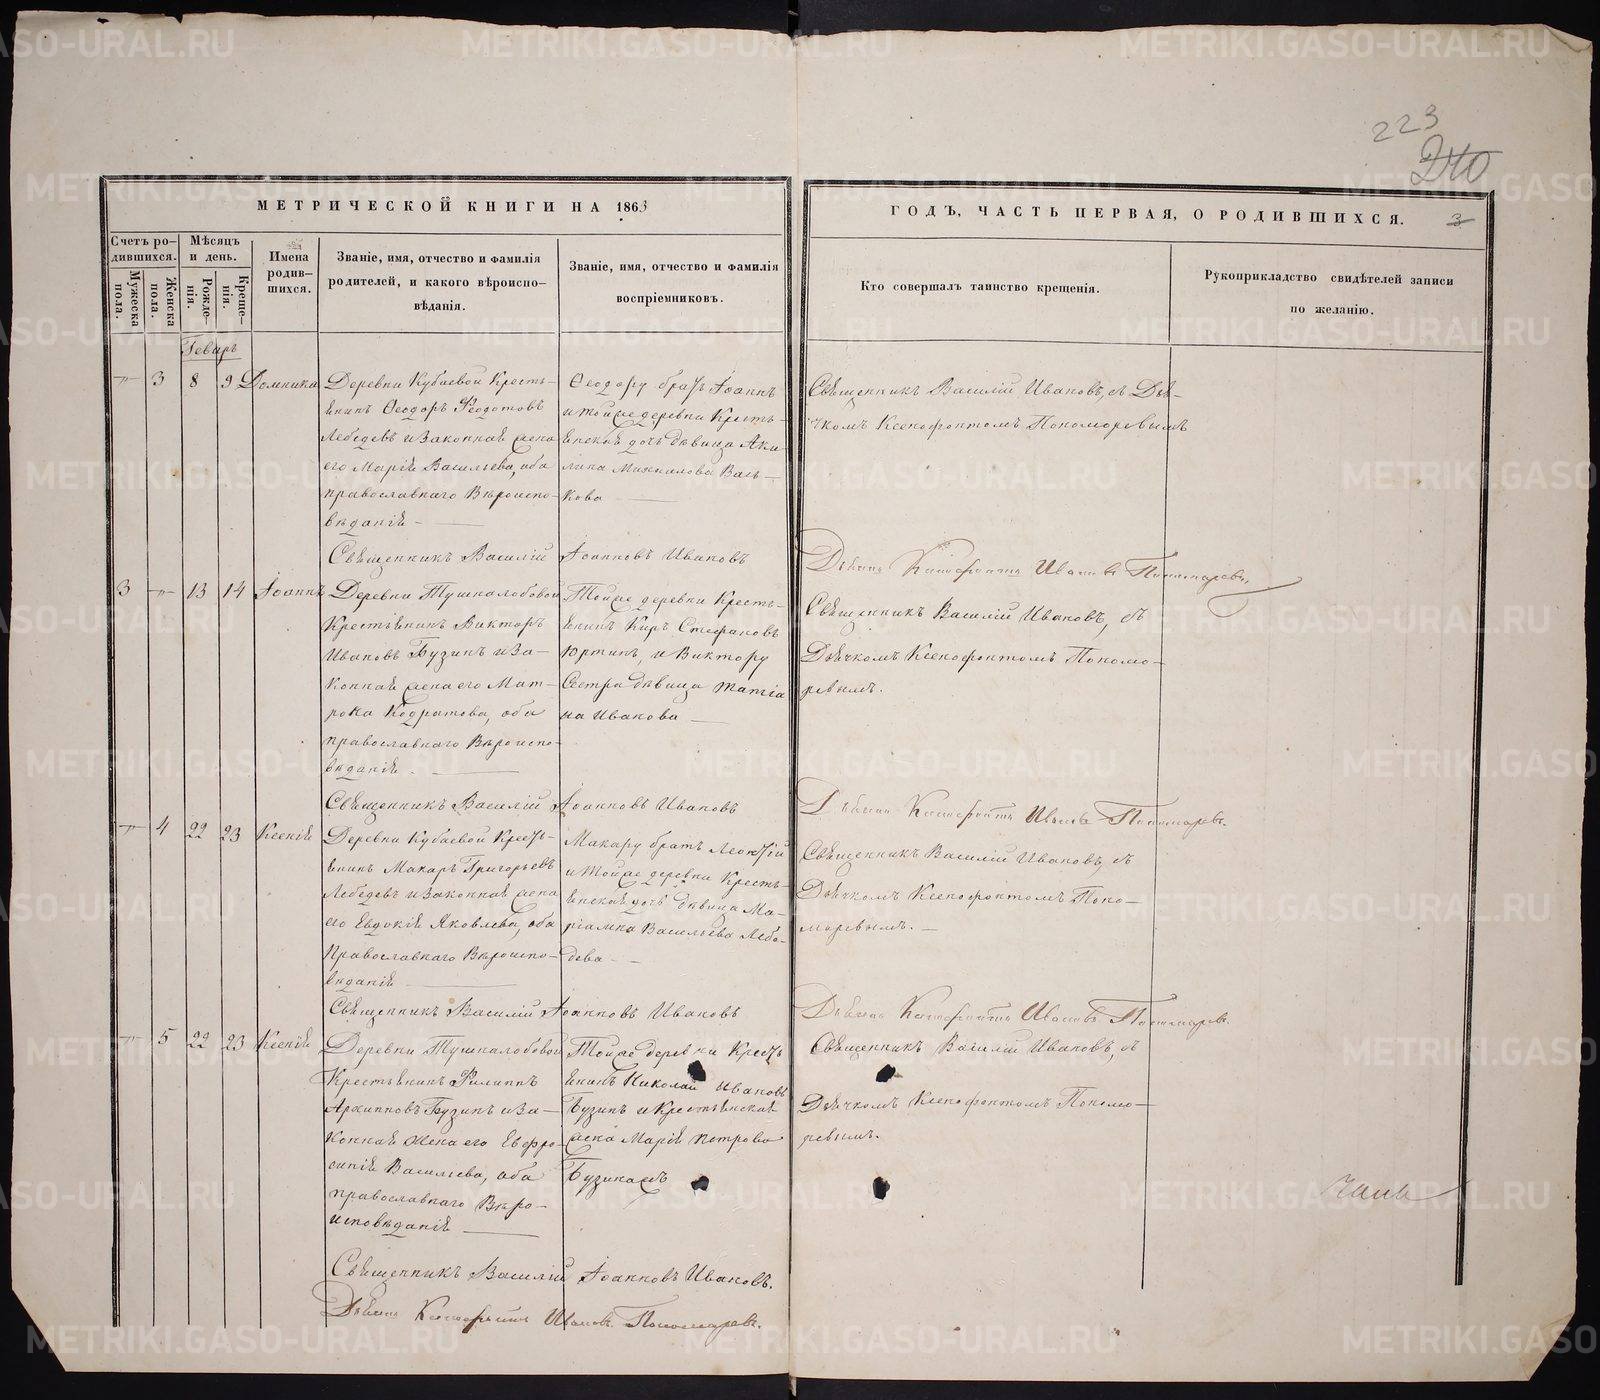 223
МЕТРИЧЕСКОЙ КНИГИ НА 1863
ГОДЪ, ЧАСТЬ ПЕРВАЯ, О РОДИВШИХСЯ.
3
Счетъ ро-
дившихся.
Мужеска
пола.
Женска
пола.
Мѣсяцъ
и день.
Рожде-
нія.
Креще-
нія.
Имена
родив-
шихся.
Званіе, имя, отчество и фамилія
родителей, и какого вѣроиспо-
вѣданія.
Званіе, имя, отчество и фамилія
воспріемниковъ.
Кто совершалъ таинство крещенія.
Рукоприкладство свидѣтелей записи
по желанію.
Генварь
3 8 9 Домника
Деревни Кубаевой Кресть-
янинъ Ѳеодоръ Ѳеодотовъ
Лебедевъ и законная жена
его Марія Васильева, оба
православнаго Вѣроиспо-
вѣданія
Ѳеодору братъ Іоаннъ
и тойже деревни Кресть-
янская дочь дѣвица Аки-
лина Михаилова Вась-
кова
Священникъ Василій Ивановъ, съ Дья-
чкомъ Ксенофонтомъ Пономоревымъ
Священникъ Василій Іоанновъ Ивановъ
3 13 14 Іоаннъ
Деревни Тушналобовой
Крестьянинъ Викторъ
Ивановъ Бузинъ и за-
конная жена его Мат-
рона Кодратова, оба
православнаго Вѣроиспо-
вѣданія
Тойже деревни Кресть-
янинъ Киръ Стефановъ
Юртинъ, и Виктору
Сестра дѣвица Татіа
на Иванова
Священникъ Василій Ивановъ, съ
Дьячкомъ Ксенофонтомъ Пономо-
ревымъ.
Священникъ Василій Іоанновъ Ивановъ
4 22 23 Ксенія
Деревни Кубаевой Кресть-
янинъ Макаръ Григорьевъ
Лебедевъ и законная жена
его Евдокія Яковлева, оба
Православнаго Вѣроиспо-
вѣданія
Макару братъ Леонтій
и тойже деревни Кресть-
янская дочь дѣвица Ма-
ріамна Васильева Лебе-
дева
Священникъ Василій Ивановъ, съ
Дьячкомъ Ксенофонтомъ Поно-
моревымъ.
Священникъ Василій Іоанновъ Ивановъ
5 22 23 Ксенія
Деревни Тушналобовой
Крестьянинъ Филиппъ
Архипповъ Бузинъ и за-
конная жена его Евфро-
синія Васильева, оба
православнаго Вѣро-
исповѣданія
Тойже деревни Кресть
янинъ Николай Ивановъ
Бузинъ и Крестьянская
жена Марія Петрова
Бузиныхъ
Священникъ Василій Ивановъ, съ
Дьячкомъ Ксенофонтомъ Пономо-
ревымъ.
Священникъ Василій Іоанновъ Ивановъ.
METRIKI.GASO-URAL.RU